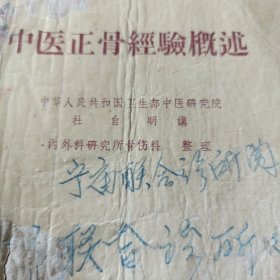 中医正骨經驗概述
中华人民共和国卫生部中医研究院
杜自明講
内外科研究所骨伤科 整理
联合诊所
联合诊所